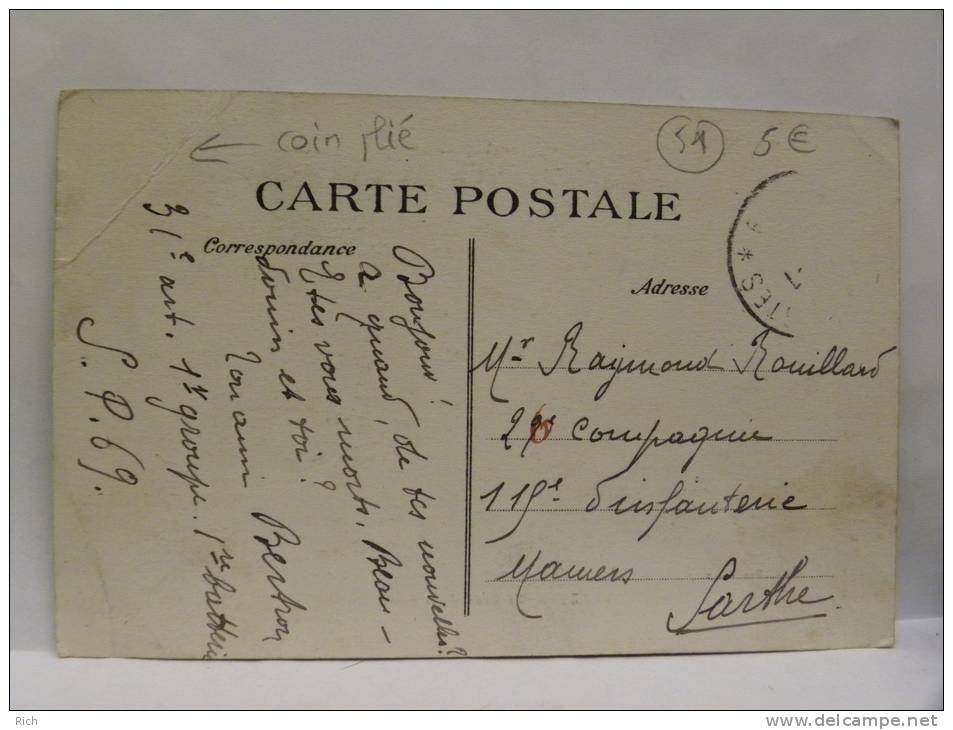 coin plié
51 5€
CARTE POSTALE
Correspondance
Adresse
TES *
Bonjour!
a quand, de tes nouvelles?
Etes vous morts, Beau-
douin et toi?
Ton ami Bertron
31e art. 1r groupe. 1re batterie
S. P. 69.
Mr Raymond Rouillard
26 Compagnie
115e d'infanterie
Mamers
Sarthe
Rich
www.delcampe.net